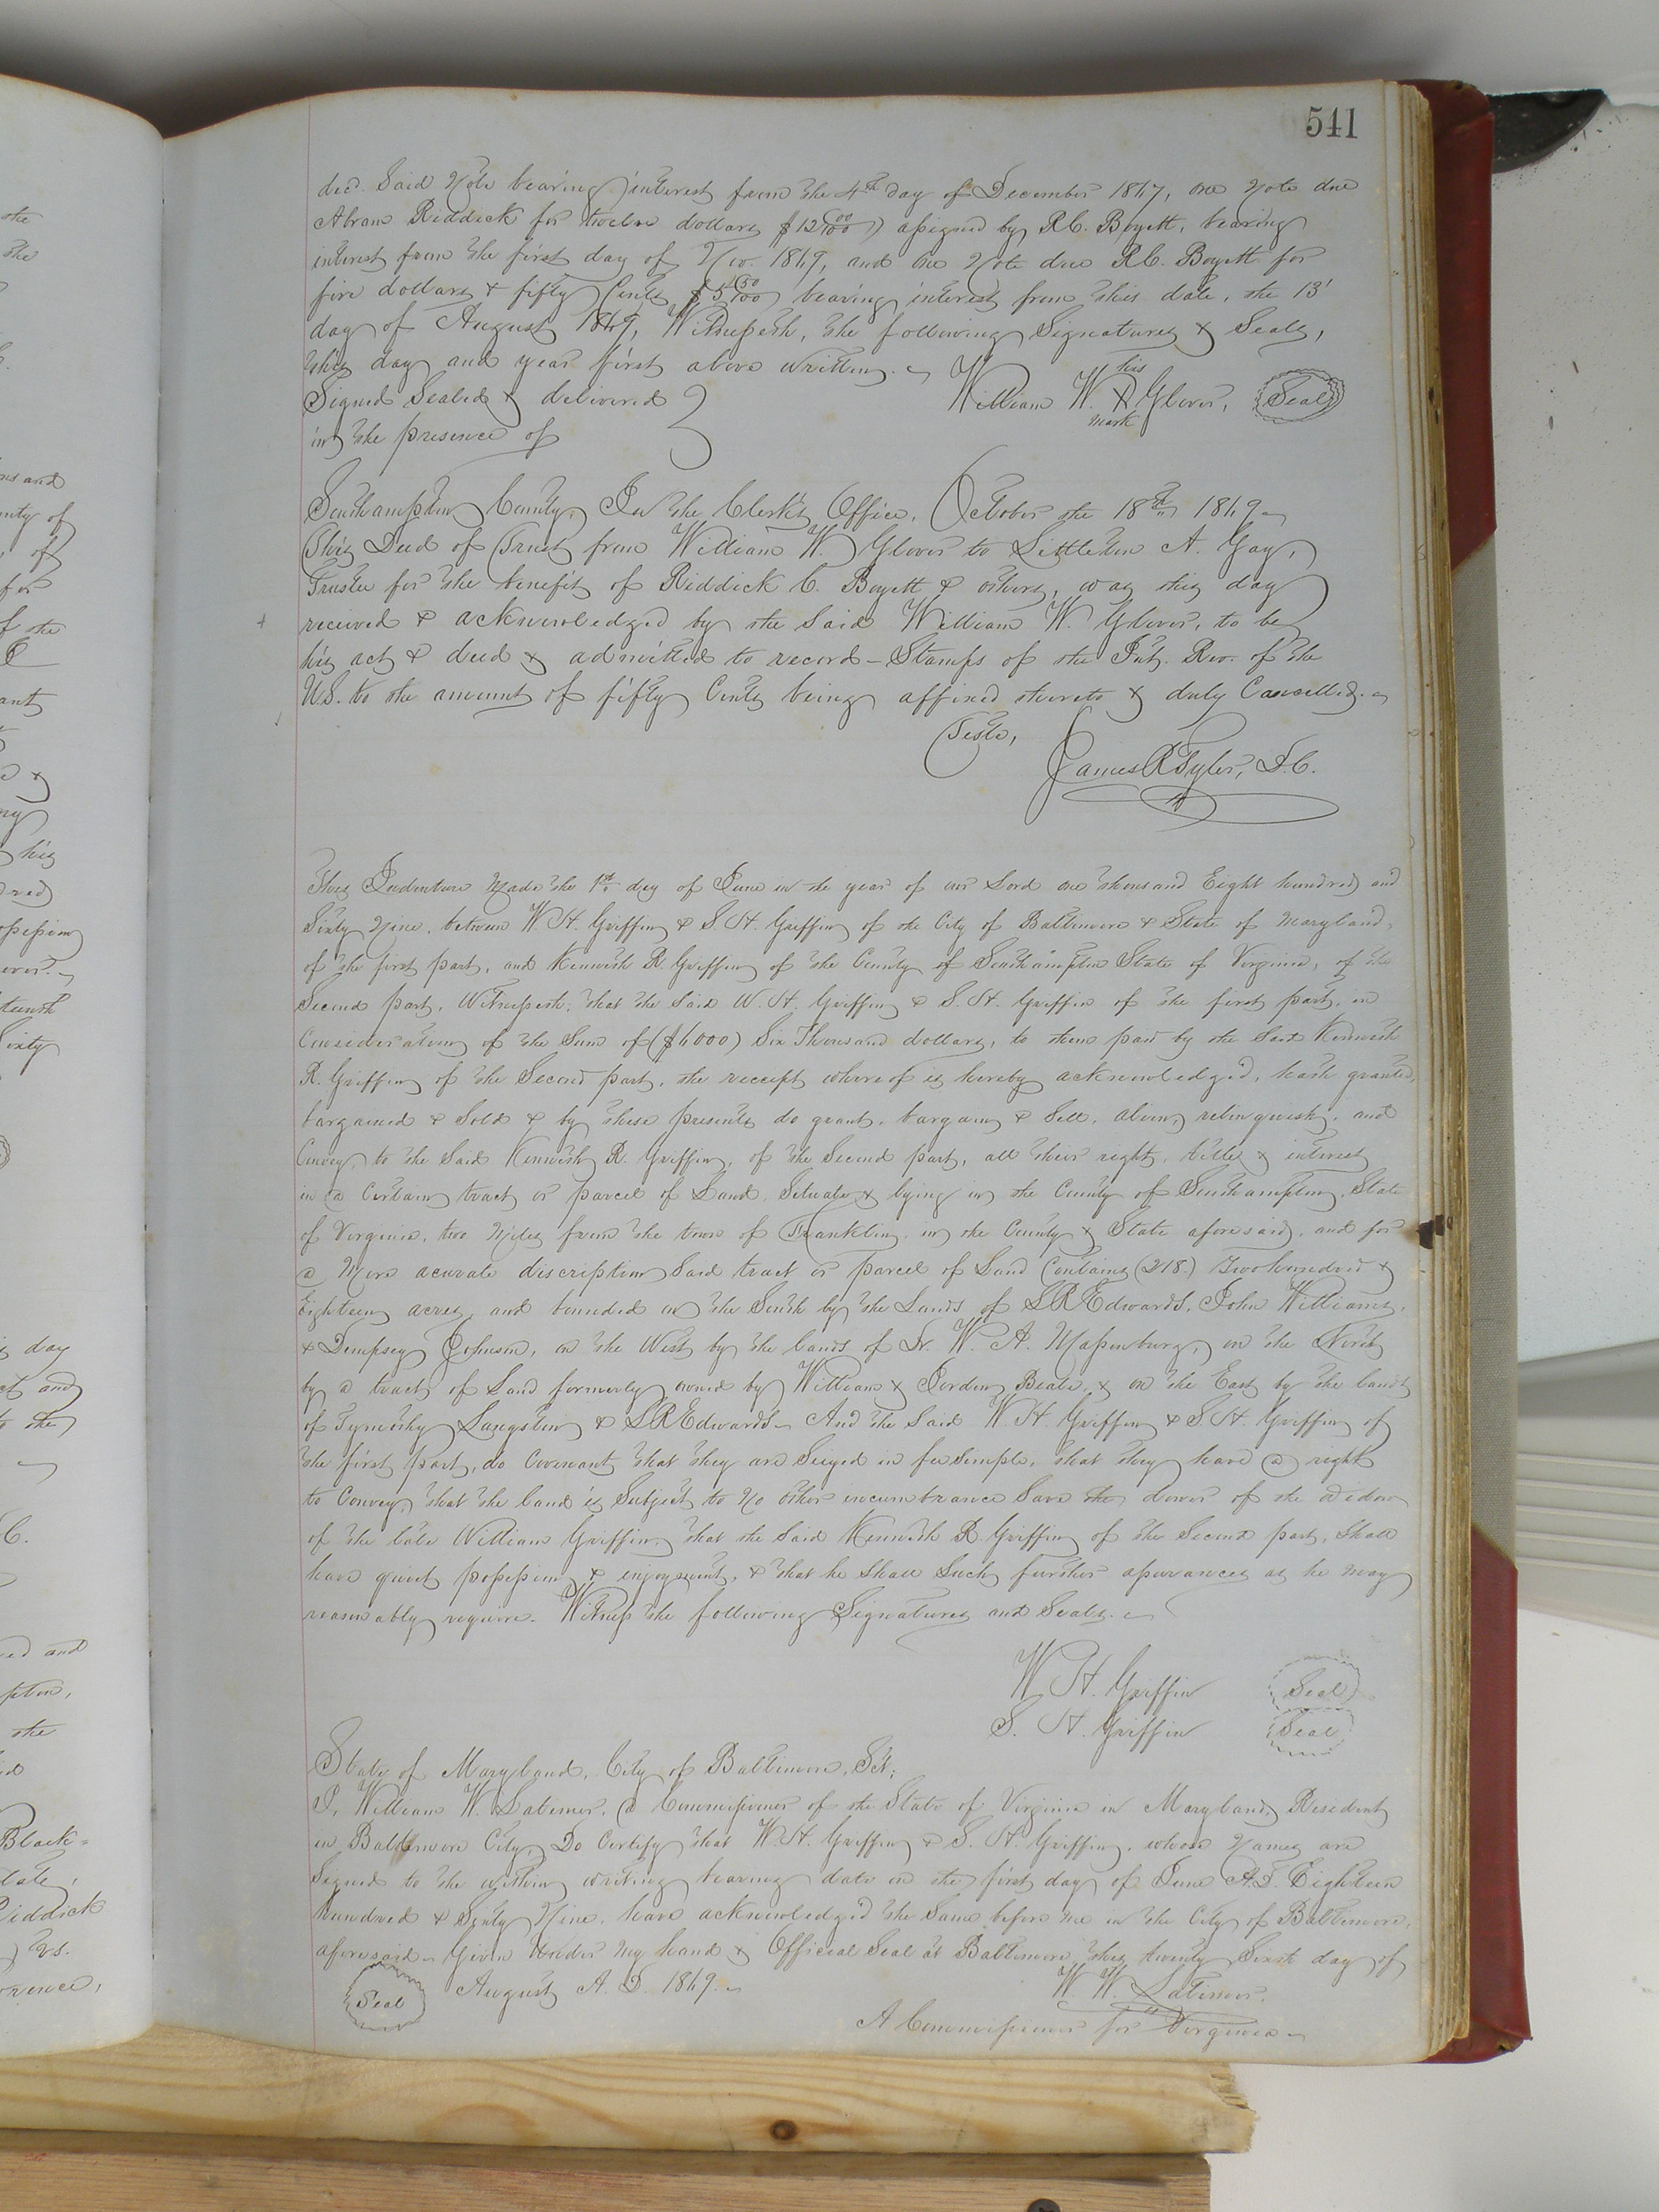 541
decd. Said Note bearing interest from the 4th day of December 1867, one Note due
Abram Riddick for twelve dollars $12 00/100) assigned by R.C. Boyett, bearing
interest from the first day of Nov. 1869, and one Note due R.C. Boyett for
five dollars & fifty Cents $5 50/100 bearing interest from this date, the 13'
day of August 1869, Witnesseth, the following Signatures & Seals,
this day and year first above written.
his
Signed Sealed & delivered William W. X Glover, Seal
mark
in the presence of
Southampton County, In the Clerk's Office, October the 18th 1869
This Deed of Trust from William W. Glover to Littleton A. Gay,
Trustee for the benefit of Riddick C. Boyett & others, was this day
received & acknowledged by the said William W. Glover, to be
his act & deed & admitted to record - Stamps of the Int. Rev. of the
U.S. to the amount of fifty Cents being affixed thereto & duly Cancelled.
Teste,
James R Tyler, D.C.
This Indenture Made the 1st day of June in the year of our Lord one thousand Eight hundred and
Sixty Nine, between W. H. Griffin & S. H. Griffin of the City of Baltimore & State of Maryland,
of the first part, and Kenneth R. Griffin of the County of Southampton State of Virginia, of the
Second part, Witnesseth; that the Said W. H. Griffin & S. H. Griffin of the first part, in
Consideration of the Sum of ($6000) Six Thousand dollars, to them paid by the Said Kenneth
R. Griffin of the Second part, the receipt whereof is hereby acknowledged, hath granted,
bargained & Sold & by these presents do grant, bargain & Sell, alien, relinquish, and
Convey, to the Said Kenneth R. Griffin, of the Second part, all their right, title & interest
in a Certain tract or parcel of Land, Situate & lying in the County of Southampton, State
of Virginia, two Miles from the town of Franklin, in the County & State aforesaid, and for
a More acurate discription Said tract or parcel of Land Contains (218.) Two hundred &
Eighteen acres, and bounded on the South by the Lands of S R Edwards, John Williams,
& Dempsey Johnson, on the West by the lands of Dr. W. A. Massenburg, on the North
by a tract of Land formerly owned by William & Jordan Beale, & on the East by the lands
of Tymothy Langston & S R Edwards. And the Said W H. Griffin & S H. Griffin of
the first part, do Covenant that they are Seized in fee simple, that they have a right
to Convey, that the land is Subject to no other incumbrance Save the dower of the widow
of the late William Griffin, that the Said Kenneth R. Griffin of the Second part, Shall
have quiet possession & enjoyment, & that he Shall Such further assurances as he may
reasonably require. Witness the following Signatures and Seals.
W. H. Griffin Seal
S. H. Griffin Seal
State of Maryland, City of Baltimore, Sct;
I, William W. Latimer, a Commissioner of the State of Virginia in Maryland, Resident
in Baltimore City, Do Certify that W. H. Griffin & S. H. Griffin, whose Names are
Signed to the within writing bearing date on the first day of June A.D. Eighteen
Hundred & Sixty Nine, have acknowledged the Same before me in the City of Baltimore,
aforesaid. Given Under my hand & Official Seal at Baltimore this twenty Sixth day of
Seal August A. D. 1869. W. W. Latimer.
A Commissioner for Virginia